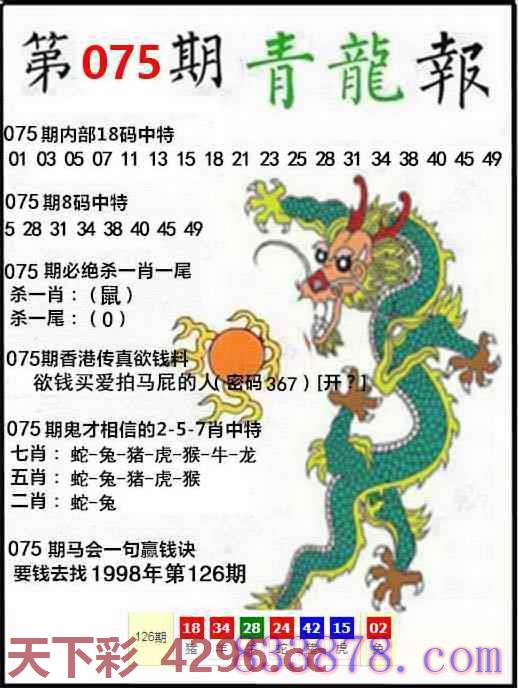 第075期青龍報
075期内部18码中特
01 03 05 07 11 13 15 18 21 23 25 28 31 34 38 40 45 49
075期8码中特
5 28 31 34 38 40 45 49
075 期必绝杀一肖一尾
杀一肖：（鼠）
杀一尾：（0）
075期香港传真欲钱料
欲钱买爱拍马屁的人(密码367)[开?]
075期鬼才相信的2-5-7肖中特
七肖：蛇-兔-猪-虎-猴-牛-龙
五肖：蛇-兔-猪-虎-猴
二肖：蛇-兔
075 期马会一句赢钱诀
要钱去找1998年第126期
126期 18 34 28 24 42 15 02
猪 羊 蛇 虎 兔
天下彩 4296.cc